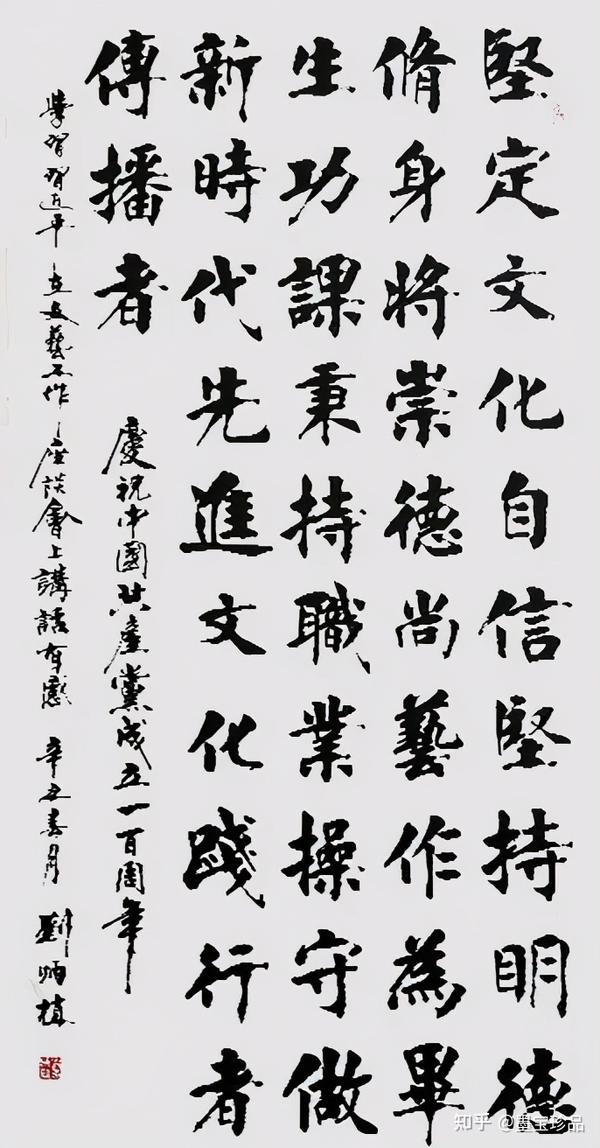 堅定文化自信堅持明德
脩身將崇德尚藝作為畢
生功課秉持職業操守做
新時代先進文化踐行者
傳播者
慶祝中國共產黨成立一百周年
學習習近平在文藝工作座談會上講話有感 辛丑春月 劉炳楨
知乎 @墨宝珍品